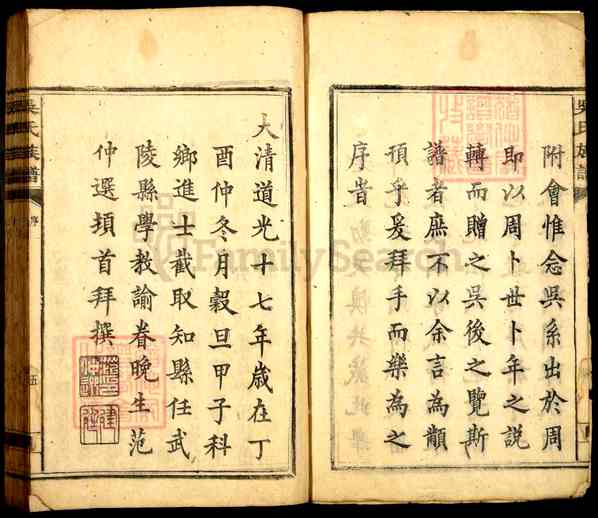 附會惟念吳系出於周
即以周卜世卜年之說
轉而贈之吳後之覽斯
譜者庶不以余言為顢
頇乎爰拜手而樂為之
序旹
大清道光十七年歲在丁
酉仲冬月穀旦甲子科
鄉進士截取知縣任武
陵縣學教諭眷晚生范
仲選頓首拜撰
吳氏族譜
序
五
FamilySearch